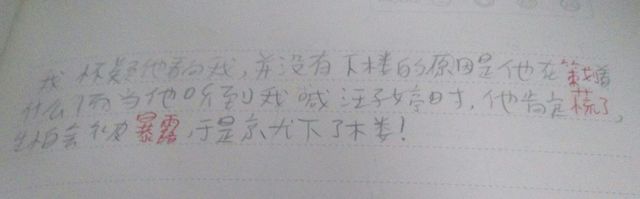 我怀疑他看向我,并没有下楼的原因是他在策划着
什么!而当他听到我喊汪子婷时,他肯定慌了,
生怕会被暴露,于是京尤下了木娄!